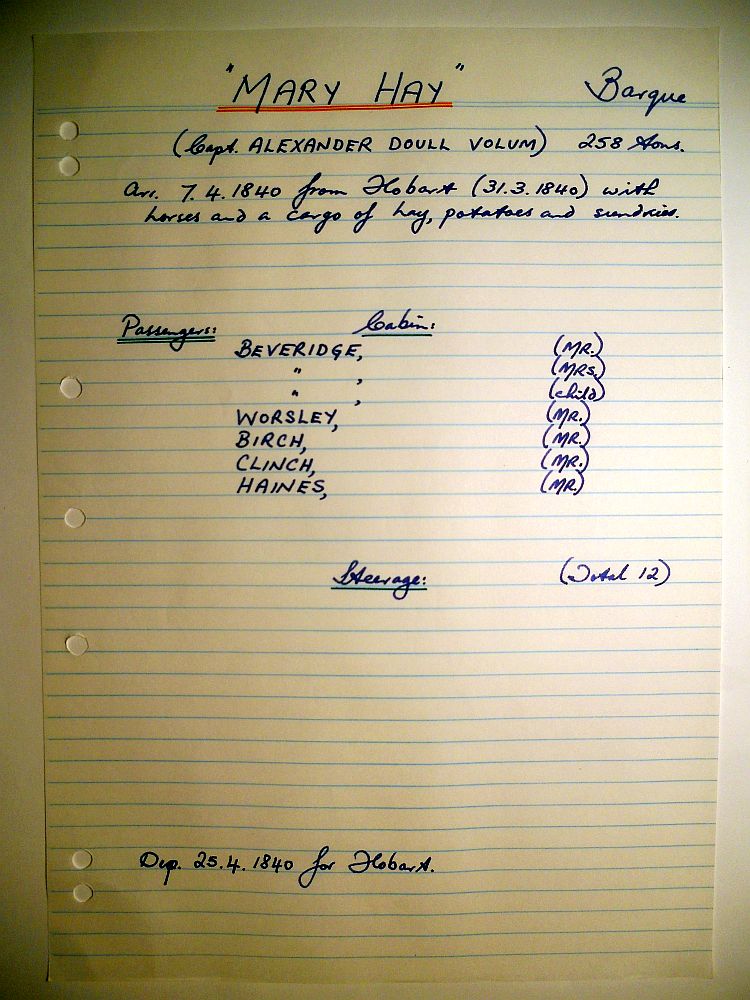 "MARY HAY" Barque
(Capt. ALEXANDER DOULL VOLUM) 258 tons.
Arr. 7.4.1840 from Hobart (31.3.1840) with
horses and a cargo of hay, potatoes and sundries.
Passengers: Cabin:
BEVERIDGE, (MR.)
" , (MRS.)
" , (child)
WORSLEY, (MR.)
BIRCH, (MR.)
CLINCH, (MR.)
HAINES, (MR.)
Steerage: (Total 12)
Dep. 25.4.1840 for Hobart.